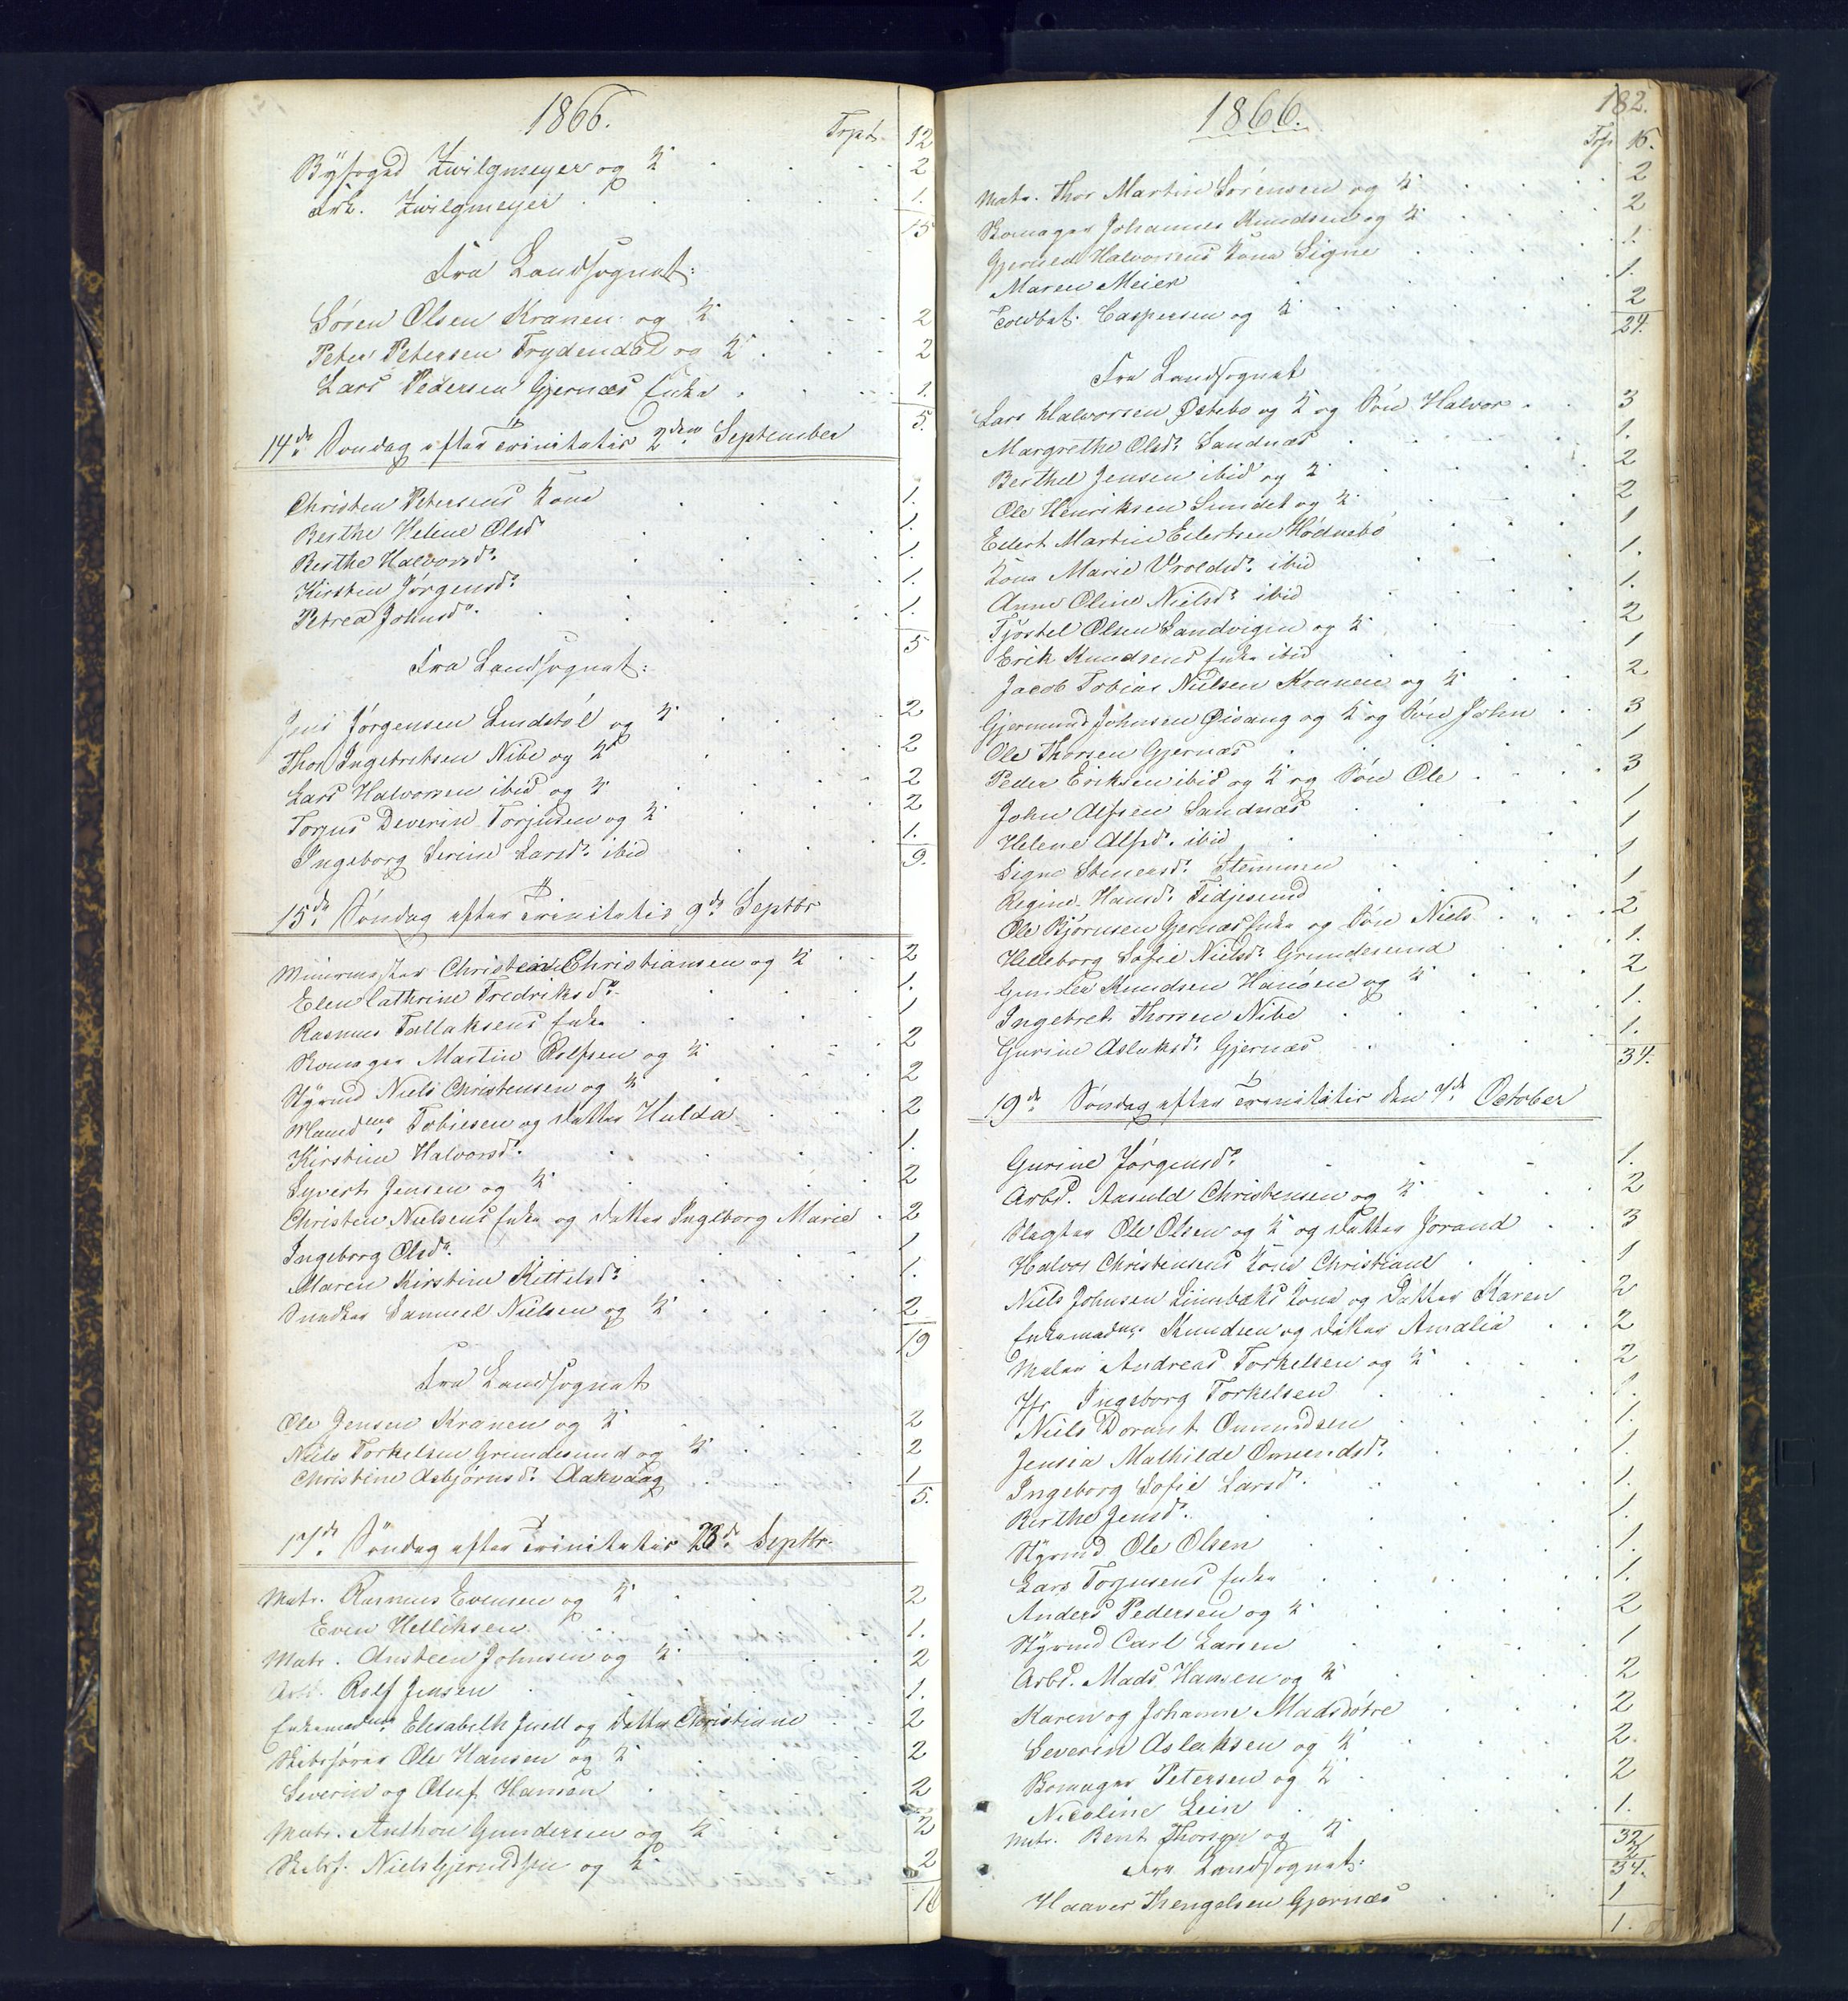 1866.
Trpt. 12
Byfoged Zwilgmeyer og K. 2
Frk. Zwilgmeyer 1.
15
Fra Landsognet:
Søren Olsen Kranen og K. 2
Peter Petersen Frydendal og K. 2
Lars Pedersen Gjernæs Enke 1.
5.
14de Søndag efter Trinitatis 2den September
Christen Petersens Kone 1.
Berthe Helene Olsdr 1.
Berthe Halvorsdr. 1.
Kirsten Jørgensdr. 1.
Petrea Johnsdr. 1.
5
Fra Landsognet:
Jens Jørgensen Lindstøl og K. 2
Thor Ingebretsen Nibe og K. 2
Lars Halvorsen ibid og K. 2
Torjus Severin Torjusen og K. 2
Ingeborg Serine Larsdr. ibid 1.
9.
15de Søndag efter Trinitatis 9de Septbr
Muurmester Christen Christiansen og K. 2
Elen Cathrine Fredriksdr. 1.
Rasmus Tallaksens Enke 1
Skomager Martin Rolfsen og K. 2
Styrmd Niels Christensen og K. 2
Madme Tobiesen og Datter Hulda 2
Kirstine Halvorsd. 1.
Syvert Jensen og K. 2
Christen Nielsens Enke og Datter Ingeborg Marie 2
Ingeborg Olsdr. 1
Maren Kirstine Kittelsd. 1.
Snedker Samuel Nielsen og K. 2
19
Fra Landsognet
Ole Jensen Kranen og K. 2
Niels Torkelsen Grundesund og K. 2
Christine Asbjørnsd. Aakvaag 1
5.
17de Søndag efter Trinitatis 23de Septbr.
Matr. Rasmus Evensen og K. 2
Even Helliksen 1.
Matr. Ansteen Johnsen og K. 2
Arbd. Rolf Jensen 1.
Enkemadme Elisabeth Juell og Datter Christiane 2
Skibsfører Ole Hansen og K. 2
Severin og Oluf Hansen 2
Matr. Anthon Gundersen og K. 2
Skibsf. Niels Gjeruldsen og K. 2
16
1866.
182.
Trp 16.
Matr. Thor Martin Sørensen og K. 2
Skomager Johannes Knudsen og K. 2
Gjeruld Halvorsens Kone Signe 1.
Maren Meier 1.
Toldbet. Caspersen og K. 2
24.
Fra Landsognet
Lars Halvorsen Østebø og K. og Søn Halvor 3
Margrethe Olsdr. Sandnæs 1.
Berthel Jensen ibid og K. 2
Ole Henriksen Sundet og K. 2
Eilert Martin Eilertsen Hødnebø 1
Kone Marie Vroldsdr. ibid 1.
Anne Oline Nielsdr. ibid 1.
Tjøstel Olsen Sandvigen og K. 2
Erik Knudsens Enke ibid 1
Jacob Tobias Nielsen Kranen og K. 2
Gjermund Johnsen Øisang og K. og Søn John 3
Ole Thorsen Gjernæs 1
Peder Eriksen ibid og K. og Søn Ole 3
John Alfsen Sandnæs 1
Helene Alfsd. ibid 1
Signe Stenersd. Stemmen 1
Regine Hansd. Tidjesund 1
Ole Bjørnsen Gjernæs Enke og Søn Niels 2
Helleborg Sofie Nielsd. Grundesund 1.
Gunder Knudsen Hanøen og K. 2
Ingebret Thorsen Nibe 1.
Gurine Aslaksd. Gjernæs 1.
34.
19de Søndag efter Trinitatis den 7de October
Gurine Jørgensd. 1.
Arbd. Aasuld Christensen og K. 2
Slagter Ole Olsen og K. og Datter Jorand 3
Halvor Christensens Kone Christiane 1
Niels Johnsen Linbæks Kone og Datter Karen 2
Enkemadme Knudsen og Datter Amalia 2
Maler Andreas Torkelsen og K. 2
Jfr. Ingeborg Torkelsen 1.
Niels Dorant Omundsen 1.
Jensia Mathilde Omundsd. 1.
Ingeborg Sofie Larsd. 1.
Berthe Jensd. 1.
Styrmd Ole Olsen 1.
Lars Torjusens Enke 1.
Anders Pedersen og K. 2
Styrmd Carl Larsen 1
Arbd. Mads Hansen og K. 2
Karen og Johanne Madsdøtre 2
Severin Aslaksen og K. 2.
Skomager Petersen og K. 2
Nicoline Lein 1.
32
Matr. Bent Thorsen og K. 2
34.
Fra Landsognet:
Haaver Thengelsen Gjernæs 1
1.